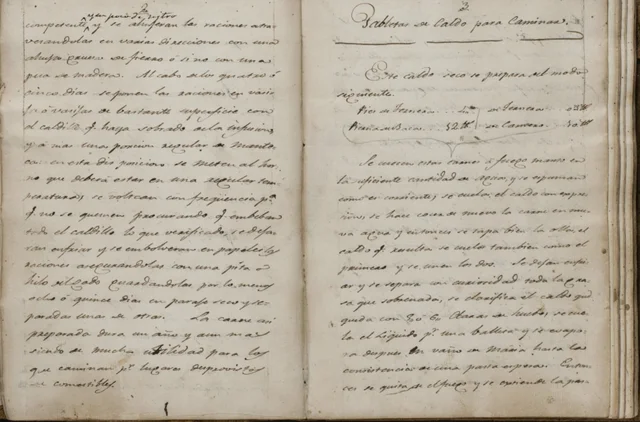 competente, y se
verandolas en varias direcciones con una
de fierro ó si no con una
de madera. Al cabo de los quatro ó
cinco dias se ponen las raciones en varias
de bastante superficie con
el caldillo q. haya sobrado de la infusion
y a mas una porcion regular de Manteca
en esta disposicion se meten al horno
que deberá estar en una regular
se voltean con frequencia p.a
q. no se quemen procurando q. embeban
todo el caldillo lo que verificado, se dejaran
enfriar y se embolveran en papeles las
raciones asegurandolas con una pita ó
hilo delgado guardandolas por lo menos
ocho ó quince dias en paraje seco y separadas
unas de otras. La carne asi
preparada dura un año y aun mas
siendo de mucha utilidad para los
que caminan p.r lugares desprovistos
de comestibles.
Tabletas de Caldo para Caminar.
Este caldo seco se prepara del modo
siguiente.
Pies de Ternera 4 de Ternera
Pierna de Baca 12 de Carnero
Se cuecen estas carnes á fuego manso en
la suficiente cantidad de agua, y se espuman
como es corriente; se cuela el caldo con
se hace cocer de nuevo la carne en nueva
agua y entonces se tapa bien la olla; el
caldo q. resulta se cuela tambien como el
primero y se unen los dos. Se dejan enfriar
y se separa con curiosidad toda la grasa
que sobrenada, se clarifica el caldo que
queda con 5 ó 6 Claras de huebo, se cuela
el Liquido p.r una Balleta y se evapora
despues en vaño de Maria hasta la
consistencia de una pasta espesa. Entonces
se quita de el fuego y se extiende la pas-